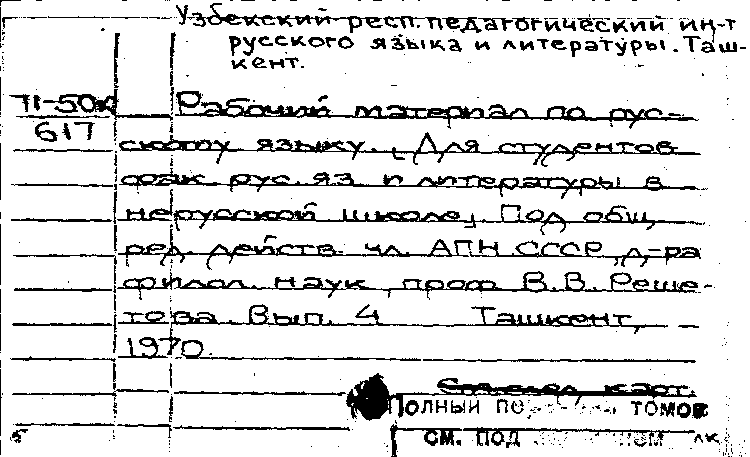 Узбекский респ. педагогический ин-т
русского языка и литературы. Таш-
кент.
71-50к
617
Рабочий материал по рус-
скому языку. [Для студентов
фак. рус. яз. и литературы в
нерусской школе]. Под общ.
ред. действ. чл. АПН СССР, д-ра
филол. наук, проф. В.В. Реше-
това. Вып. 4 Ташкент,
1970.
карт.
Полный томов
см. под